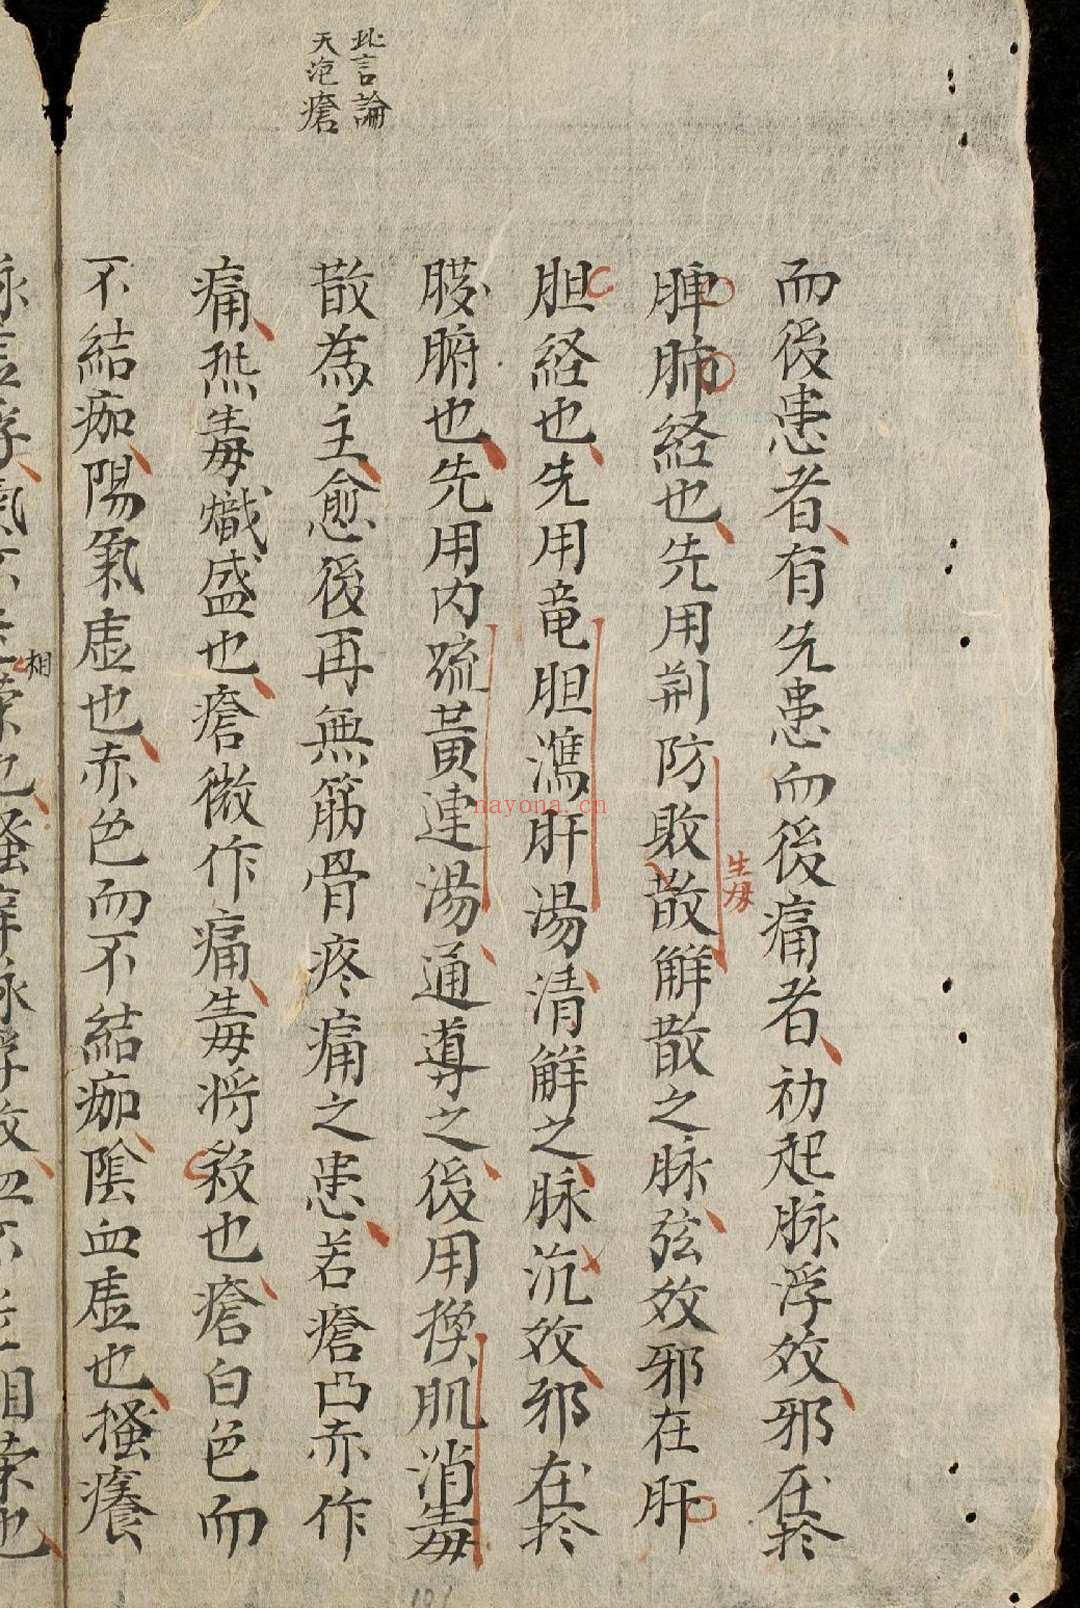 此言論
天疱瘡
而後患者有先患而後痛者初起脉浮效邪在於
脾肺経也先用荆防敗散解散之脉弦效邪在肝
生芽
胆経也先用竜胆瀉肝湯清解之脉沉效邪在於
臓腑也先用内疏黄連湯通導之後用換肌消毒
散為主愈後再無筋骨疼痛之患若瘡凸赤作
痛熱毒熾盛也瘡微作痛毒将殺也瘡白色而
不結痂陽氣虚也赤色而不結痂陰血虚也搔癢
相
nayona.cn